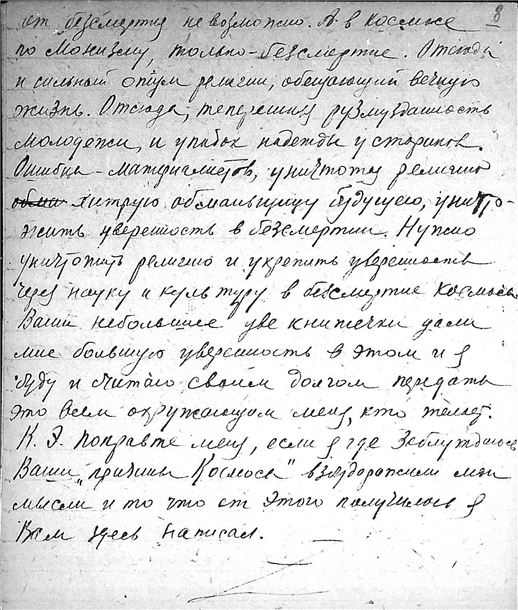 8
от безсмертия невозможно. А в космосе
по Монизму, только – безсмертие. Отсюда
и сильный опиум религии, обещающий вечную
жизнь. Отсюда, теперешняя разнузданность
молодежи, и упадок надежды у стариков.
Ошибка – материалистов, уничтожая религию
хитрую обманщицу будущего, уничто-
жить уверенность в безсмертии. Нужно
уничтожить религию и укрепить уверенность
через науку и культуру в безсмертие космоса
Ваши небольшие две книжечки дали
мне большую уверенность в этом и я
буду и считаю своим долгом передать
это всем окружающим меня, кто желает.
К. Э. поправте меня, если я где заблуждаюсь
Ваши "причина Космоса" взбудоражили мои
мысли и то что от этого получилось я
Вам здесь написал.